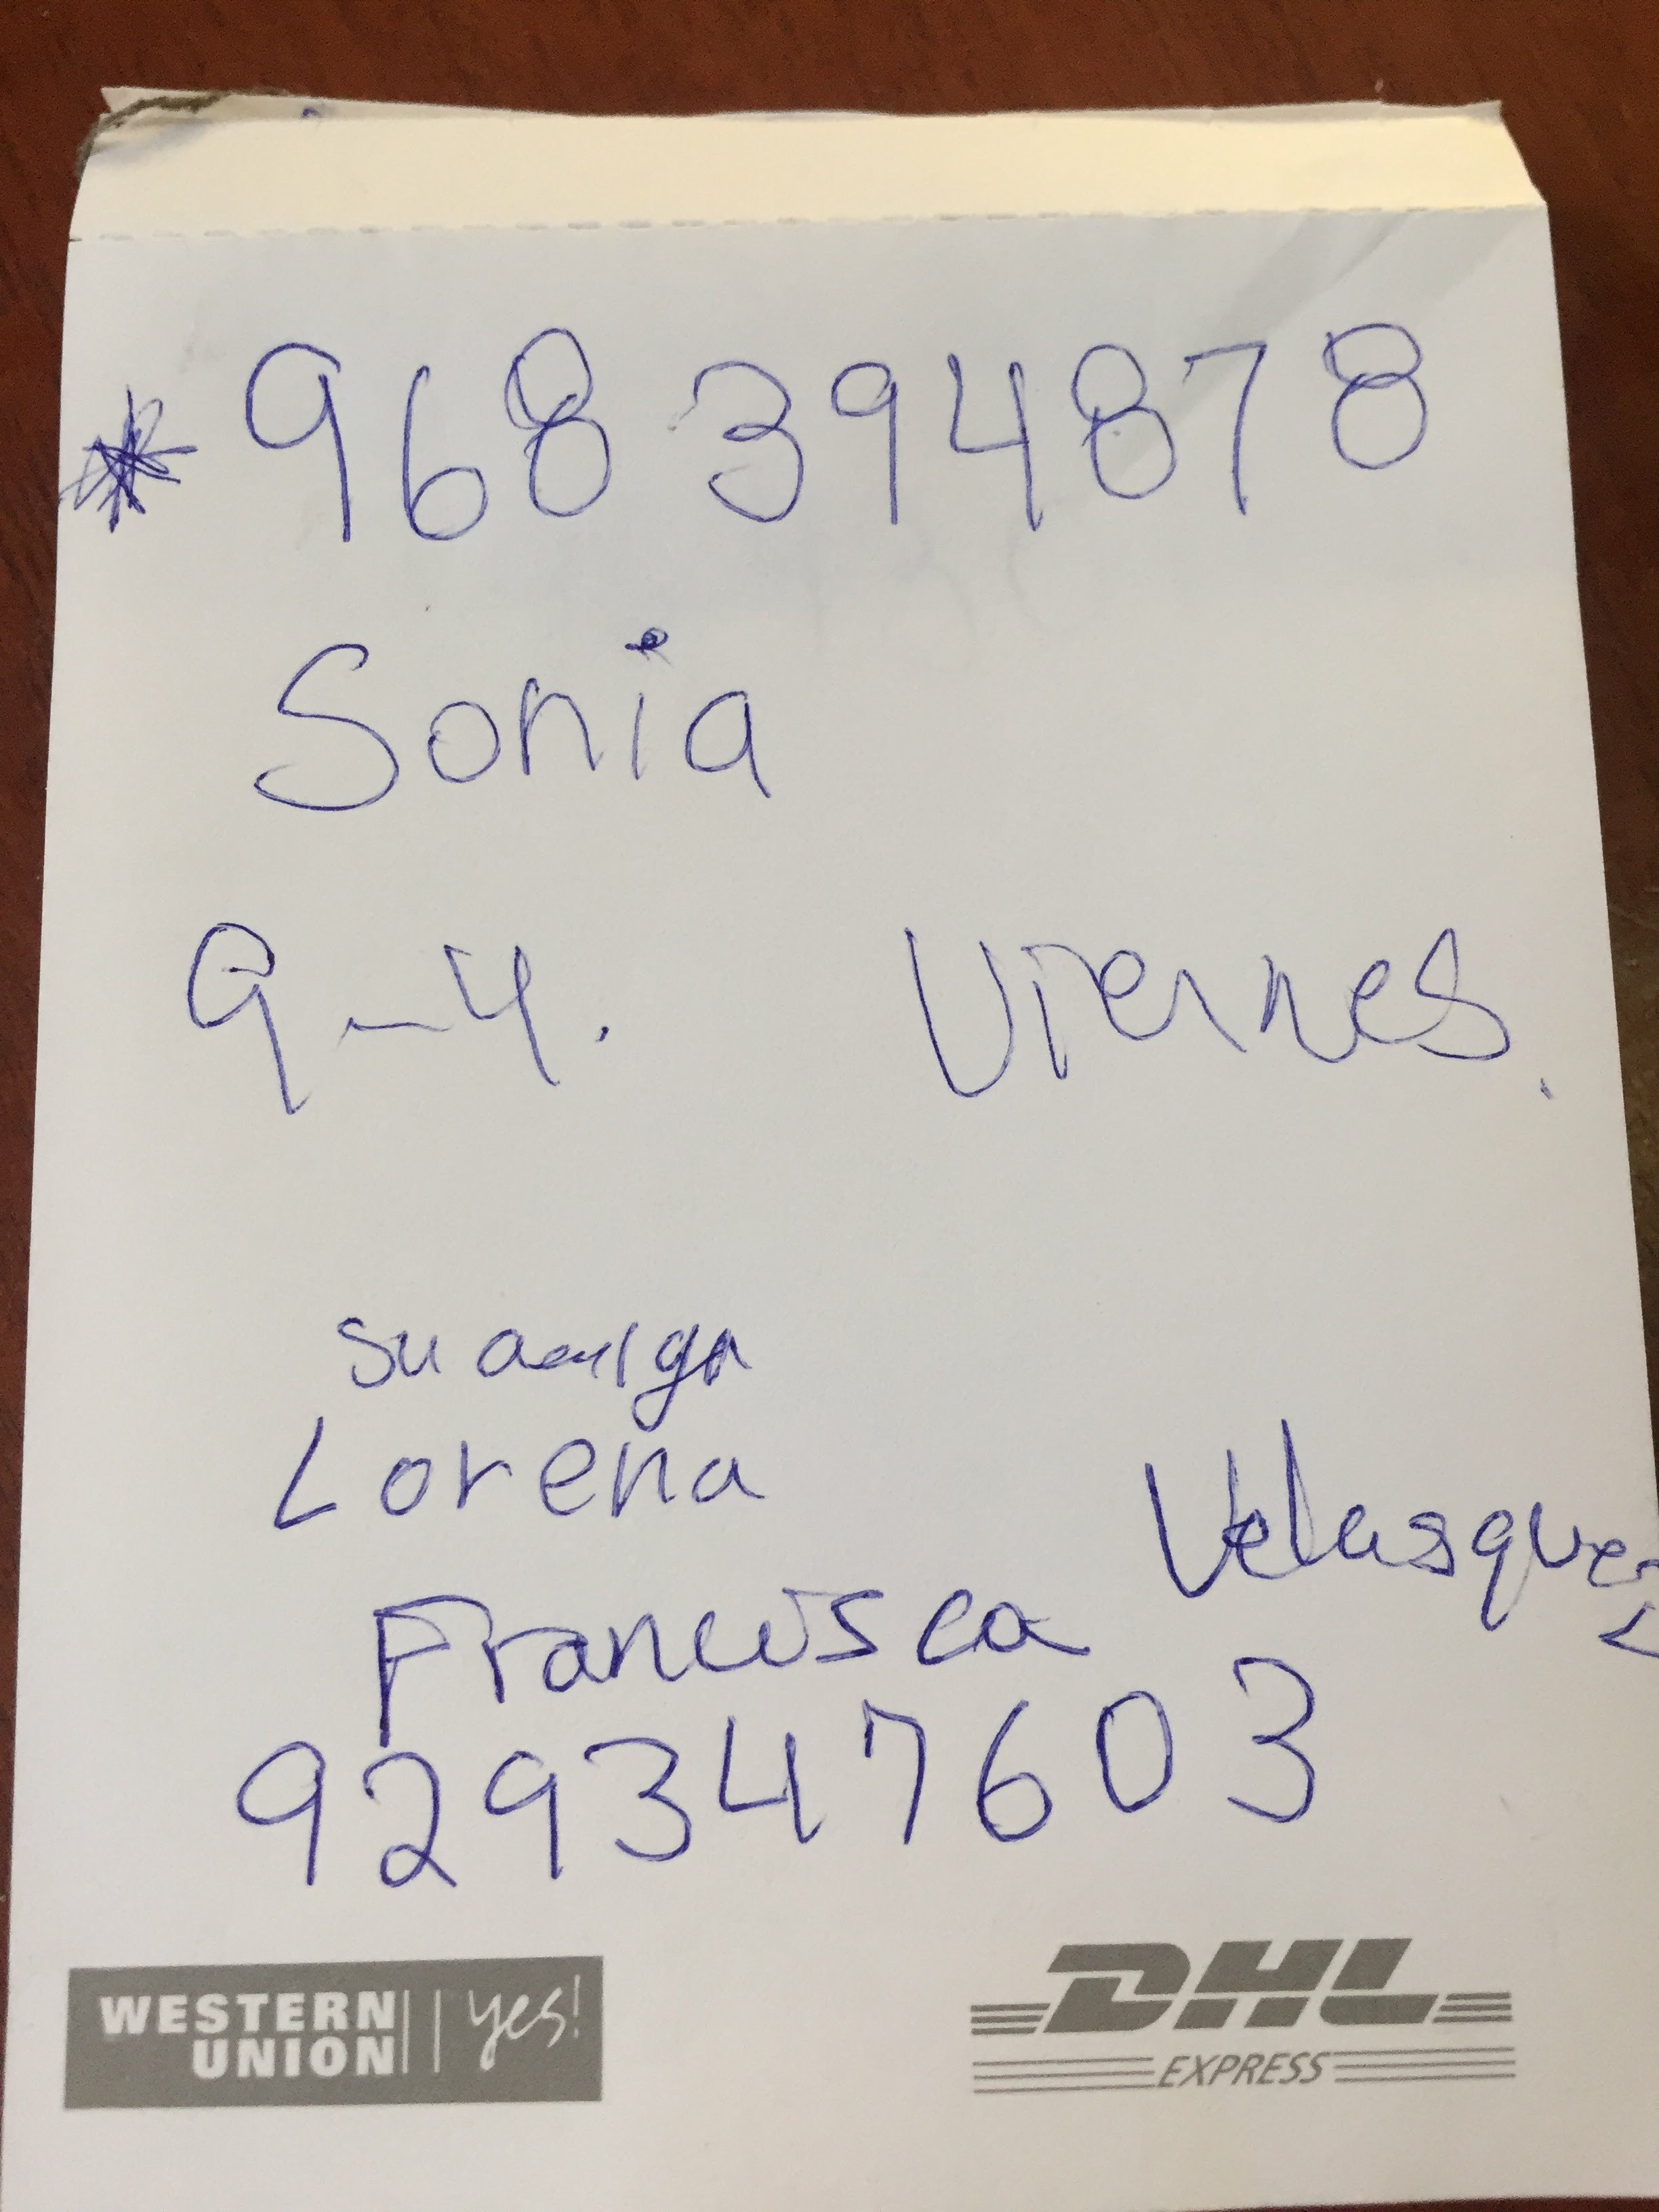 * 968 394878
Sonia
9-4. Viernes.
su amiga
Lorena
Velasquez
Francisca
929347603
WESTERN UNION yes!
DHL
EXPRESS